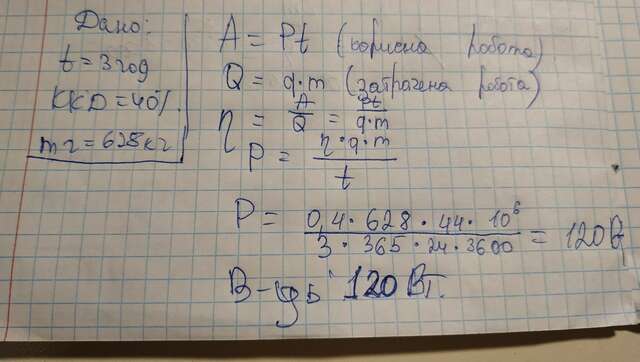 Дано:
t = 3 год
ККД = 40%.
m г = 628 кг
A = Pt (корисна робота)
Q = q·m (затрачена робота)
η = A/Q = Pt/q·m
P = η·q·m/t
P = 0,4·628·44·10⁶/3·365·24·3600 = 120 Вт
В-дь 120 Вт.